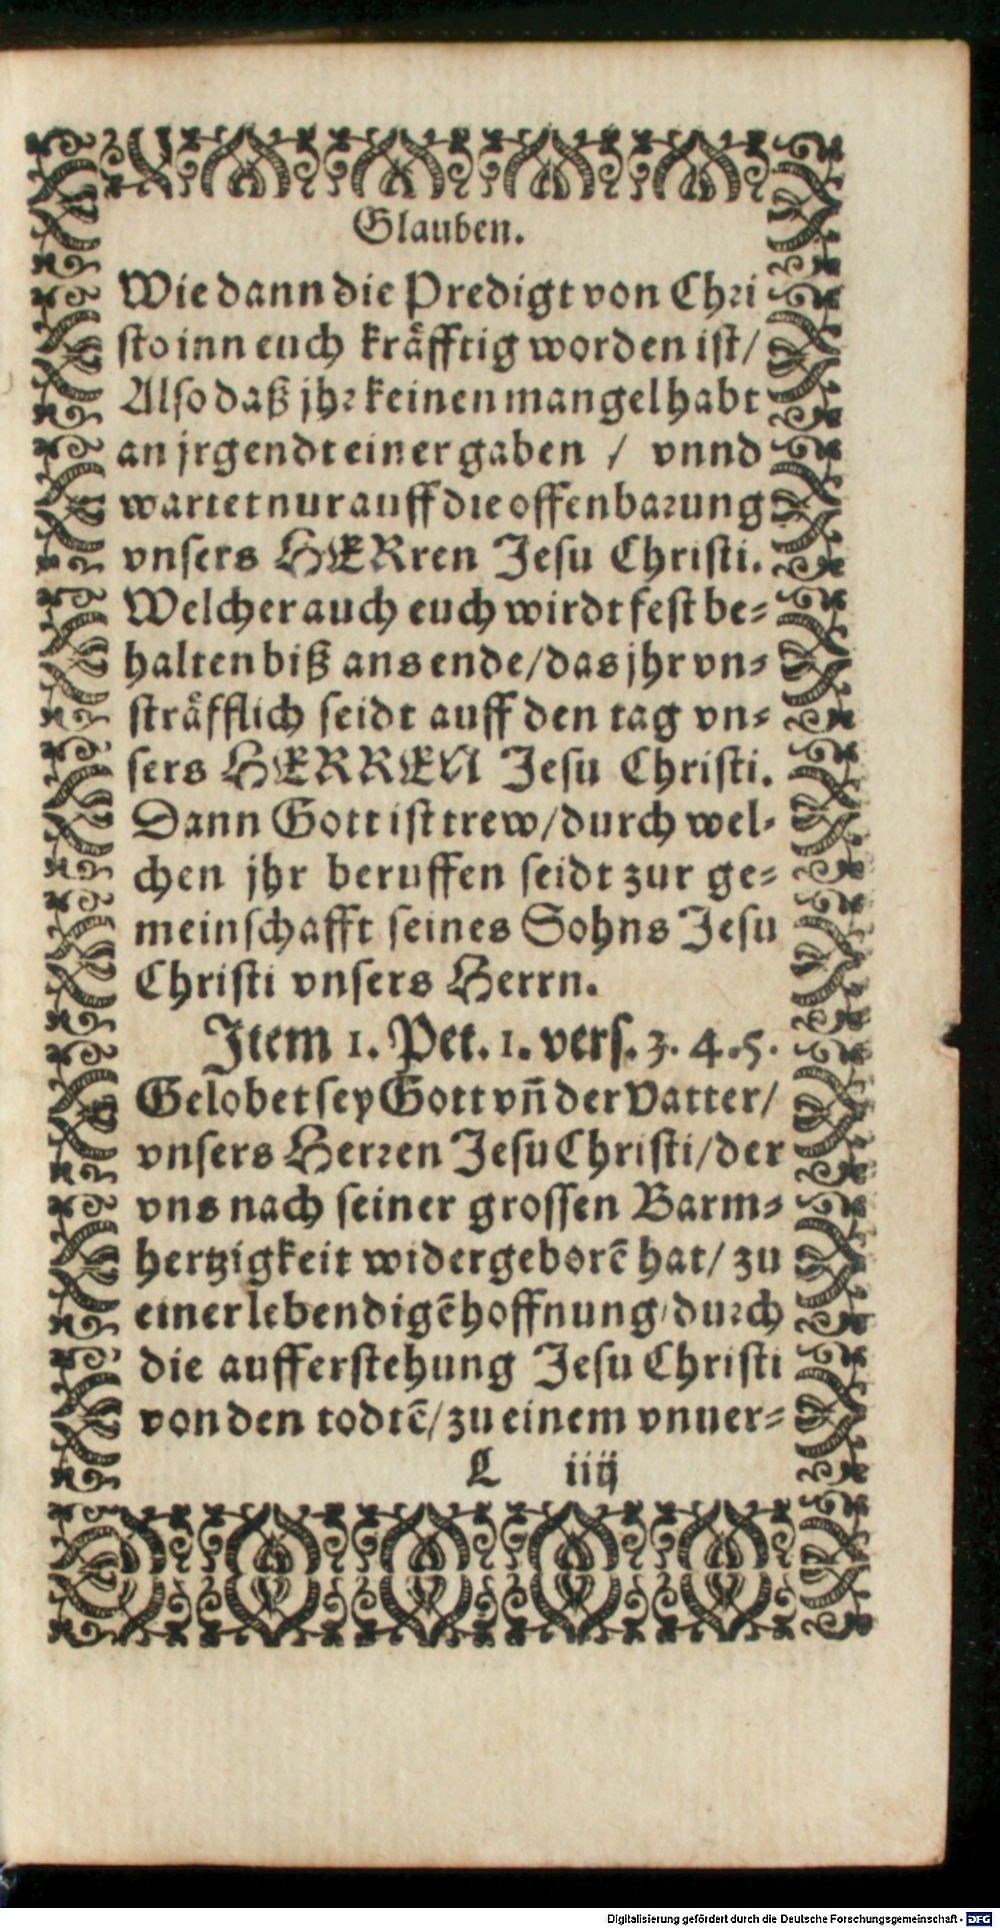 Glauben.
Wie dann die Predigt von Chri
sto inn euch kräfftig worden ist/
Also daß jhr keinen mangel habt
an jrgendt einer gaben / vnnd
wartet nur auff die offenbarung
vnsers HERren Jesu Christi.
Welcher auch euch wirdt fest be-
halten biß ans ende/das jhr vn-
sträfflich seidt auff den tag vn-
sers HERREN Jesu Christi.
Dann Gott ist trew/durch wel-
chen jhr beruffen seidt zur ge-
meinschafft seines Sohns Jesu
Christi vnsers Herrn.
Item 1. Pet. 1. vers. 3. 4. 5.
Gelobet sey Gott vñ der Vatter/
vnsers Herren Jesu Christi/der
vns nach seiner grossen Barm-
hertzigkeit widergeborẽ hat/ zu
einer lebendigẽ hoffnung/durch
die aufferstehung Jesu Christi
von den todtẽ/zu einem vnuer-
L iiij
Digitalisierung gefördert durch die Deutsche Forschungsgemeinschaft - DFG